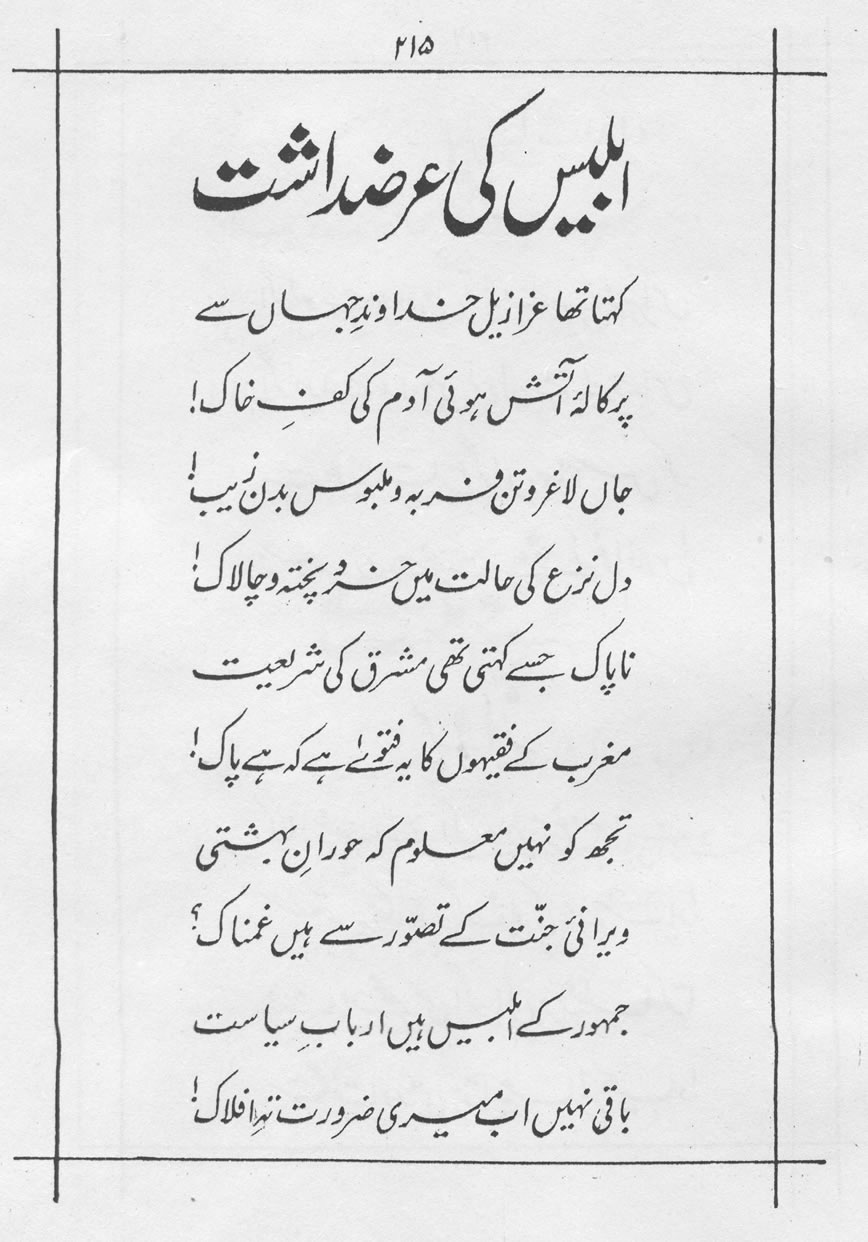 ۲۱۵
ابلیس کی عرضداشت
کہتا تھا عزازیل خداوندِ جہاں سے
پرکالۂ آتش ہوئی آدم کی کفِ خاک!
جاں لاغر و تن فربہ و ملبوس بدن زیب!
دل نزع کی حالت میں خرد پختہ و چالاک!
ناپاک جسے کہتی تھی مشرق کی شریعت
مغرب کے فقیہوں کا یہ فتویٰ ہے کہ ہے پاک!
تجھ کو نہیں معلوم کہ حورانِ بہشتی
ویرانیٔ جنّت کے تصوّر سے ہیں غمناک؟
جمہور کے ابلیس ہیں اربابِ سیاست
باقی نہیں اب میری ضرورت تہِ افلاک!